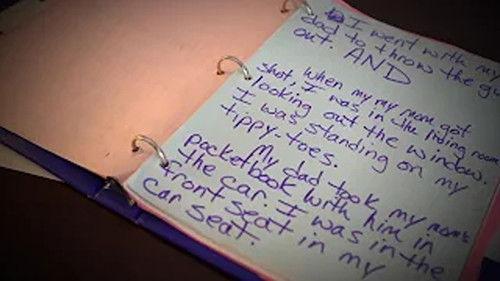 I went with my
dad to throw the gu
out. AND
When my my mom got
shot, I was in the living room
looking out the window.
I was standing on my
tippy-toes.
My dad took my mom's
pocketbook with him in
the car. I was in the
front seat in my
car seat.